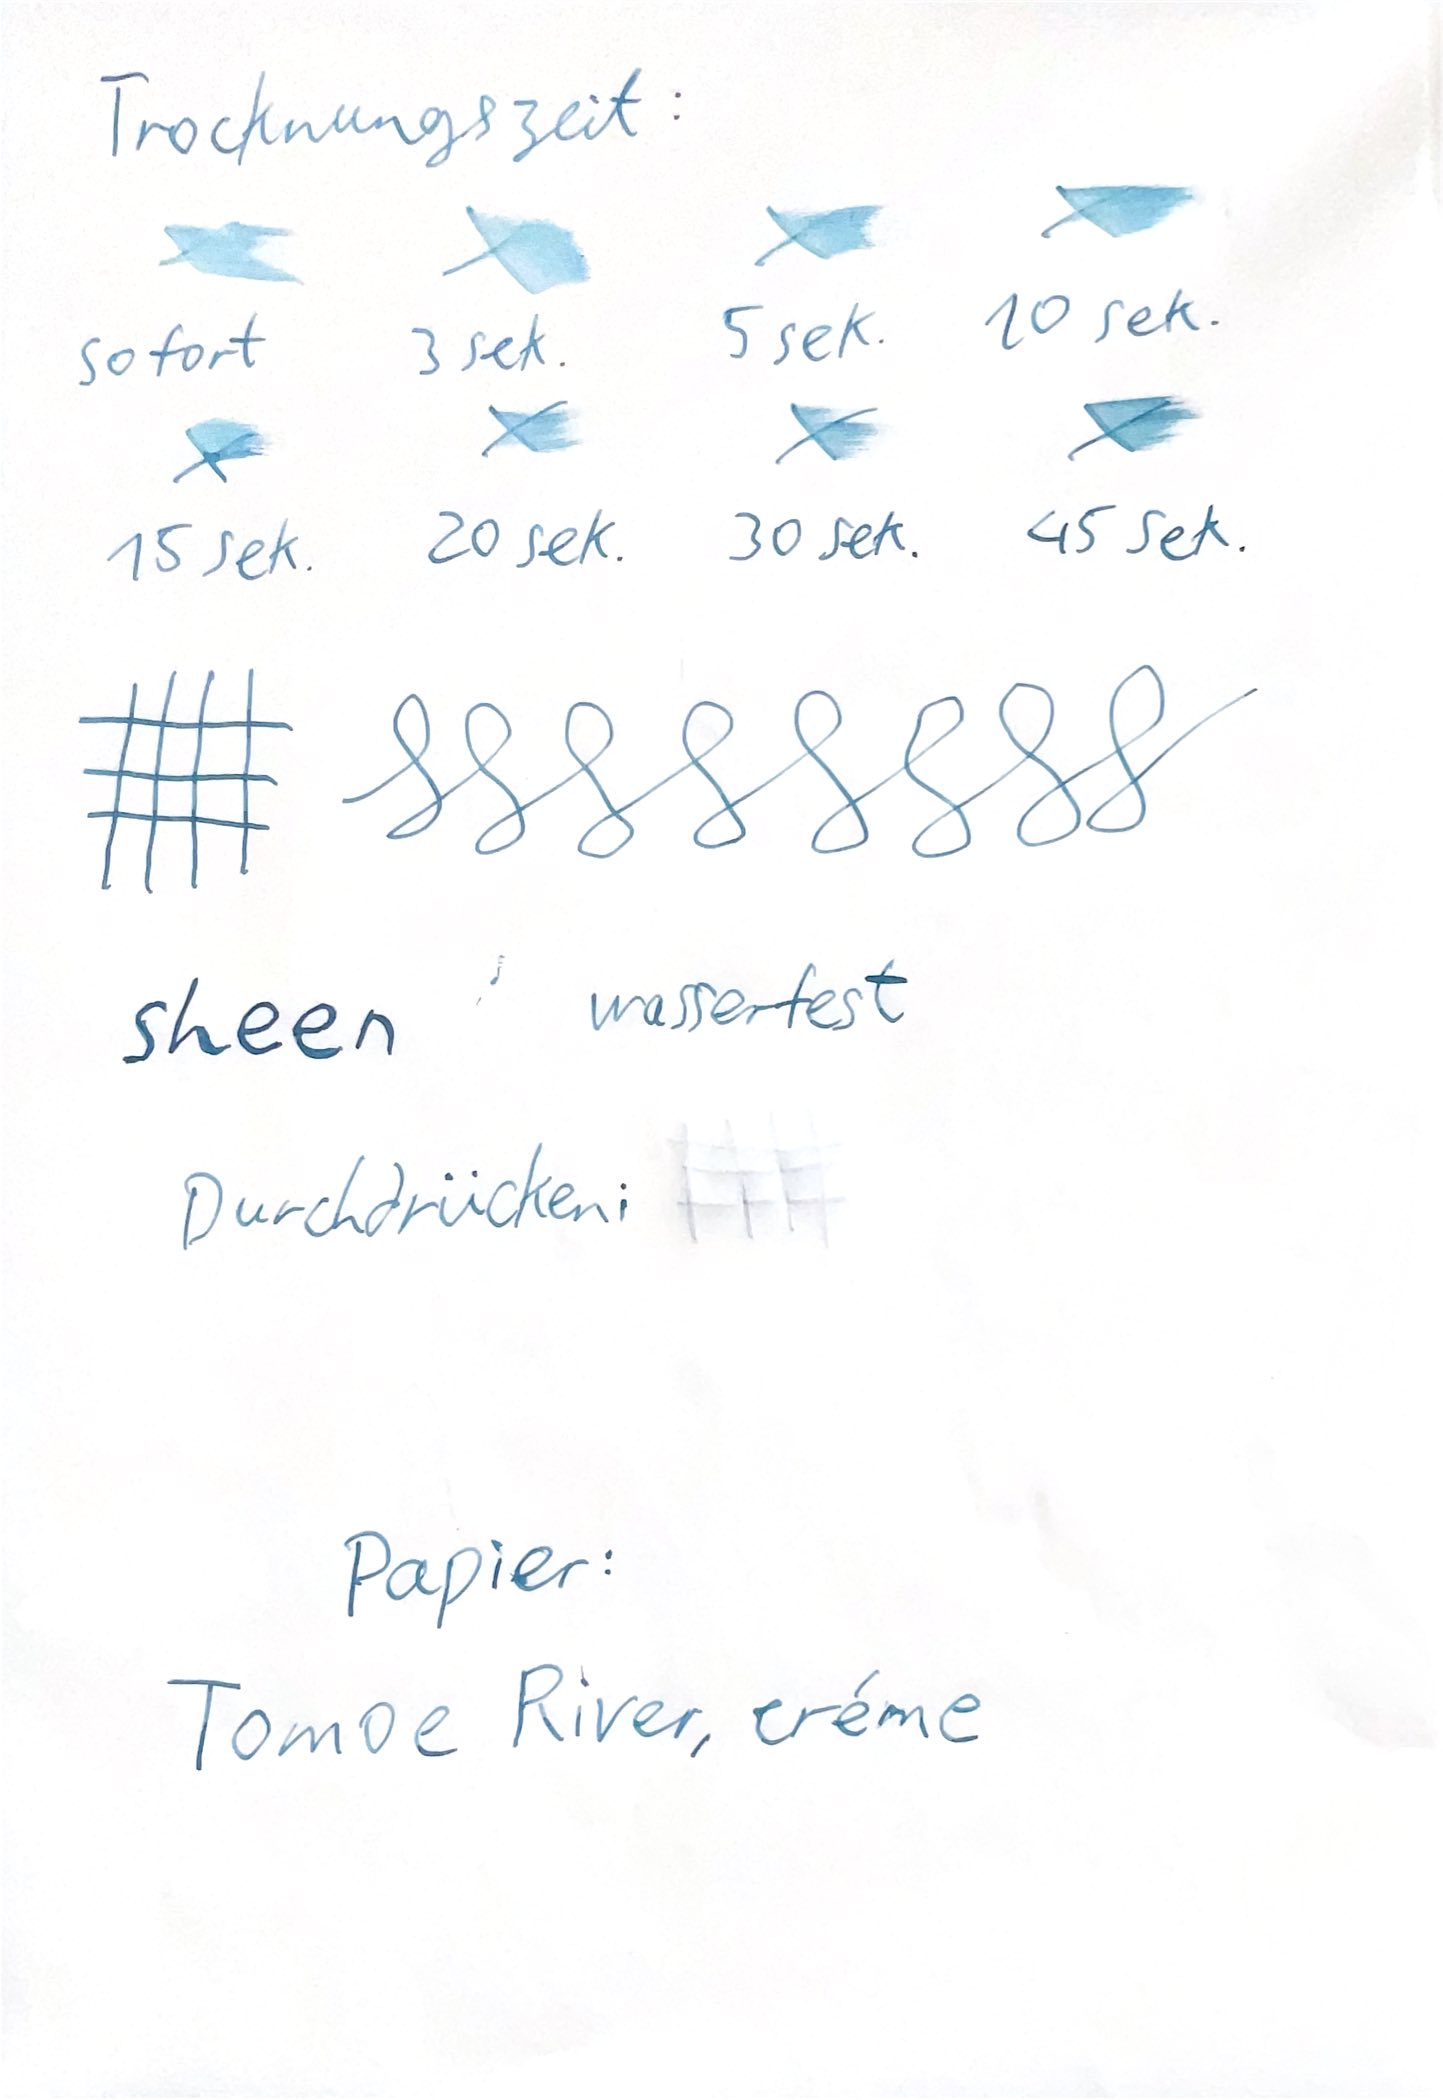 Trocknungszeit:
sofort 3 sek. 5 sek. 10 sek.
15 sek. 20 sek. 30 sek. 45 sek.
sheen wasserfest
Durchdrücken:
Papier:
Tomoe River, créme